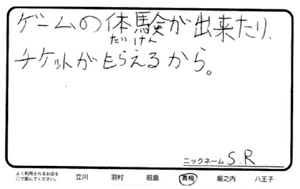 ゲームの体験が出来たり、
たいけん
チケットがもらえるから。
ニックネーム S.R
よく利用されるお店を
○で囲んでください。
立川 羽村 昭島 青梅 堀之内 八王子